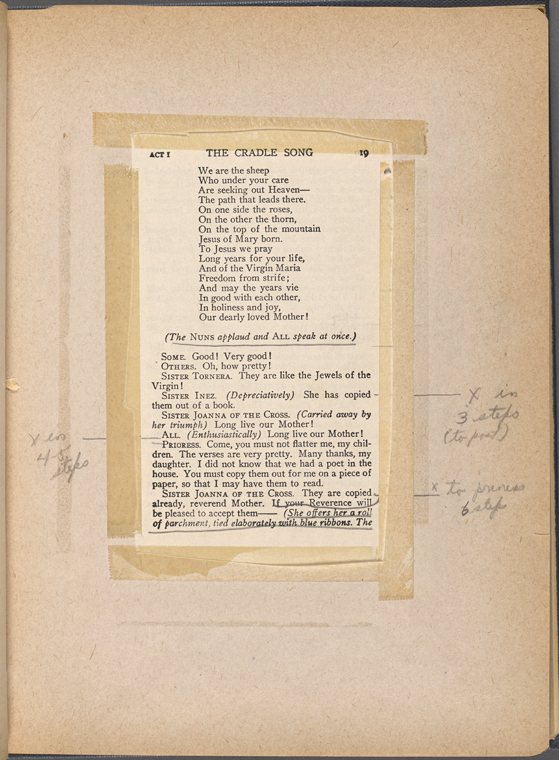 ACT I THE CRADLE SONG 19
We are the sheep
Who under your care
Are seeking out Heaven—
The path that leads there.
On one side the roses,
On the other the thorn,
On the top of the mountain
Jesus of Mary born.
To Jesus we pray
Long years for your life,
And of the Virgin Maria
Freedom from strife;
And may the years vie
In good with each other,
In holiness and joy,
Our dearly loved Mother!
(The NUNS applaud and ALL speak at once.)
SOME. Good! Very good!
OTHERS. Oh, how pretty!
SISTER TORNERA. They are like the Jewels of the
Virgin!
SISTER INEZ. (Depreciatively) She has copied
them out of a book.
SISTER JOANNA OF THE CROSS. (Carried away by
her triumph) Long live our Mother!
ALL. (Enthusiastically) Long live our Mother!
PRIORESS. Come, you must not flatter me, my chil-
dren. The verses are very pretty. Many thanks, my
daughter. I did not know that we had a poet in the
house. You must copy them out for me on a piece of
paper, so that I may have them to read.
SISTER JOANNA OF THE CROSS. They are copied
already, reverend Mother. If your Reverence will
be pleased to accept them—— (She offers her a roll
of parchment, tied elaborately with blue ribbons. The
X in
3 steps
X in
4-5
steps
X to prioress
6 steps